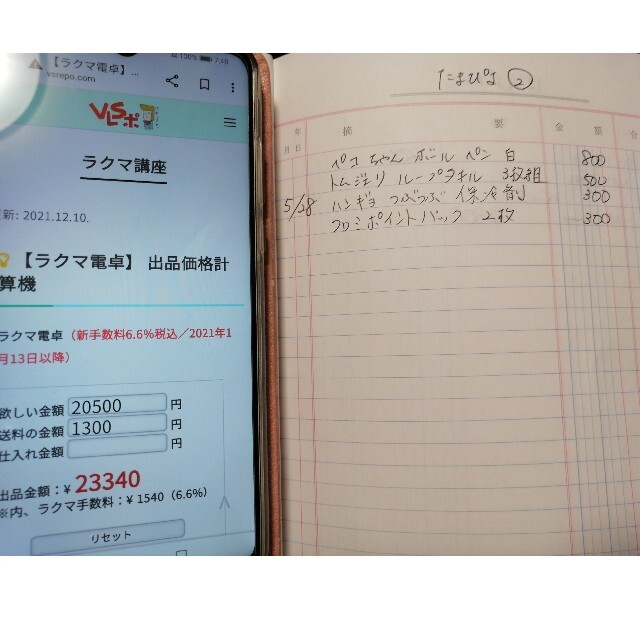 100% 7:48
【ラクマ電卓】...
vsrepo.com
VLSポ
ラクマ講座
新: 2021.12.10.
【ラクマ電卓】 出品価格計
算機
ラクマ電卓（新手数料6.6%税込／2021年1
月13日以降）
欲しい金額 20500 円
送料の金額 1300 円
仕入れ金額 円
出品金額：¥ 23340
※内、ラクマ手数料：¥ 1540（6.6%）
リセット
たまぴよ ②
年 月 日 摘 要 金 額 合
ペコちゃん ボールペン 白 800
トムジェリ ループタオル 3枚組 500
5/28 ハンギョ つぶつぶ 保冷剤 300
クロミ ポイントバック 2枚 300